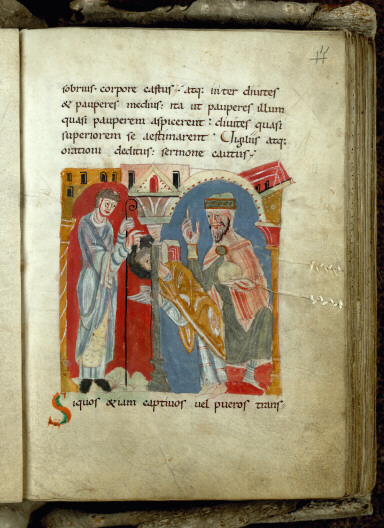 sobrius· corpore castus· atq: inter diuites
& pauperes medius: ita ut pauperes illum
quasi pauperem aspicerent: diuites quasi
superiorem se aestimarent· Uigiliis atq:
orationi deditus: sermone cautus·
Siquos &iam captiuos uel pueros trans-